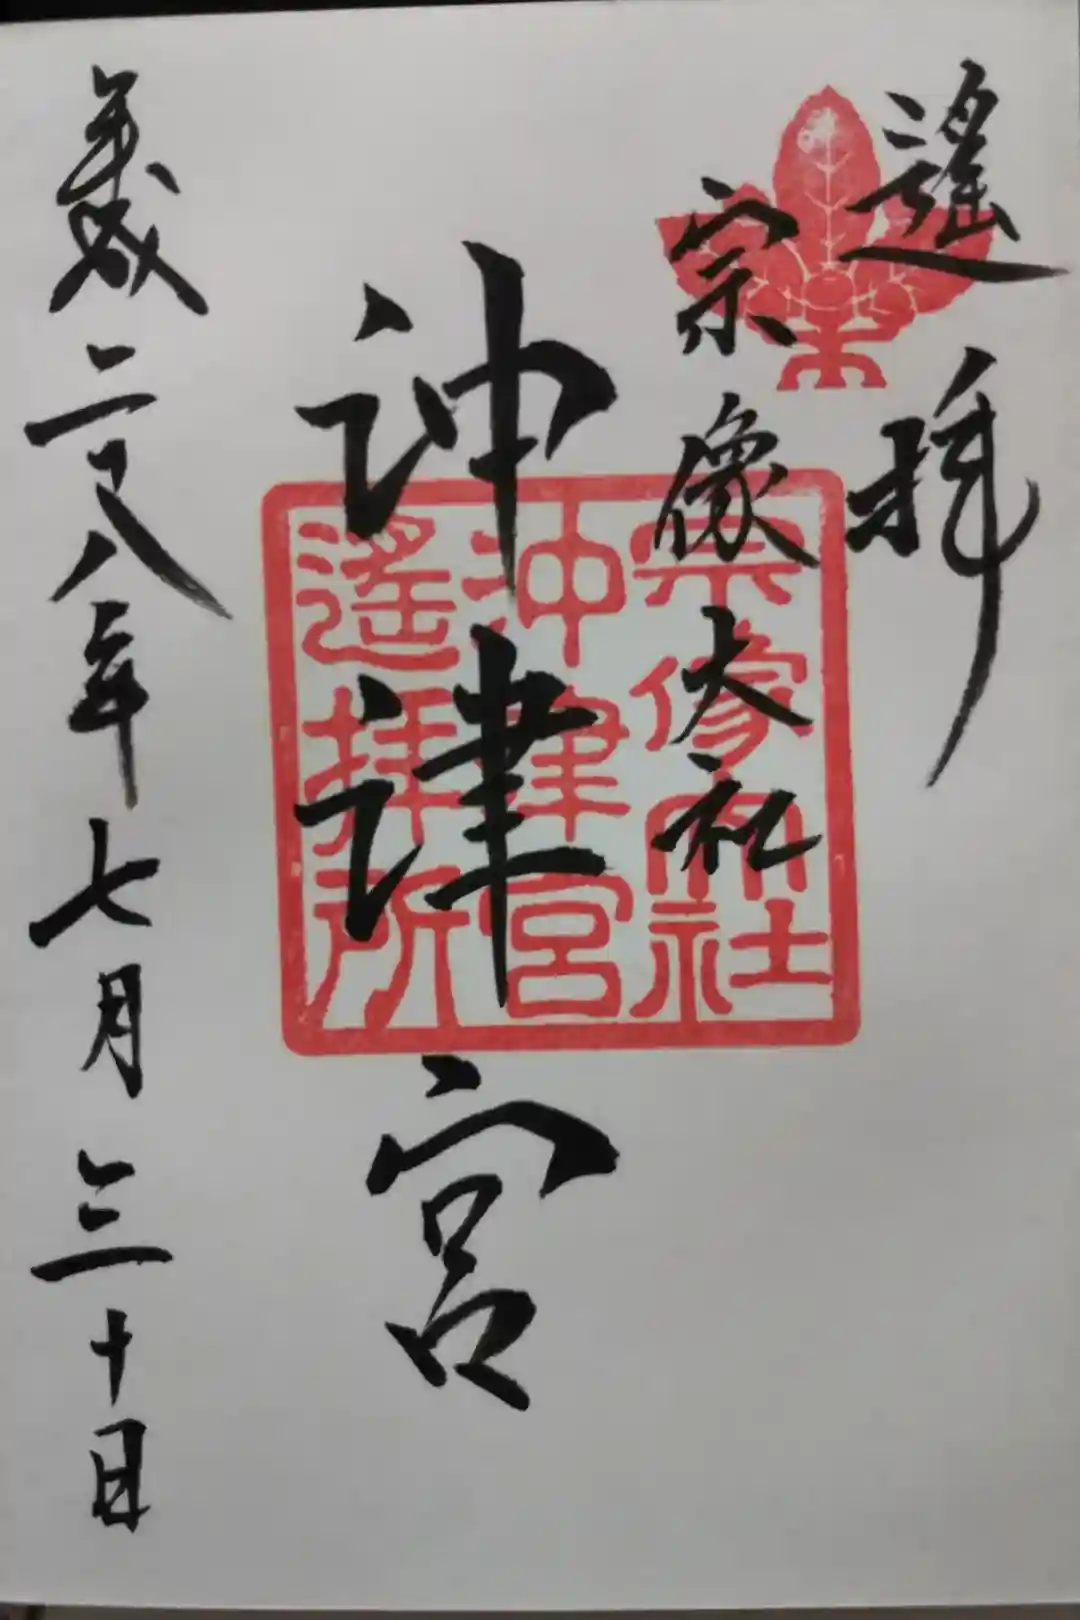 遙拝
宗像大社
沖津宮
平成二十八年七月三十日
宗像大社
沖津宮
遙拝所